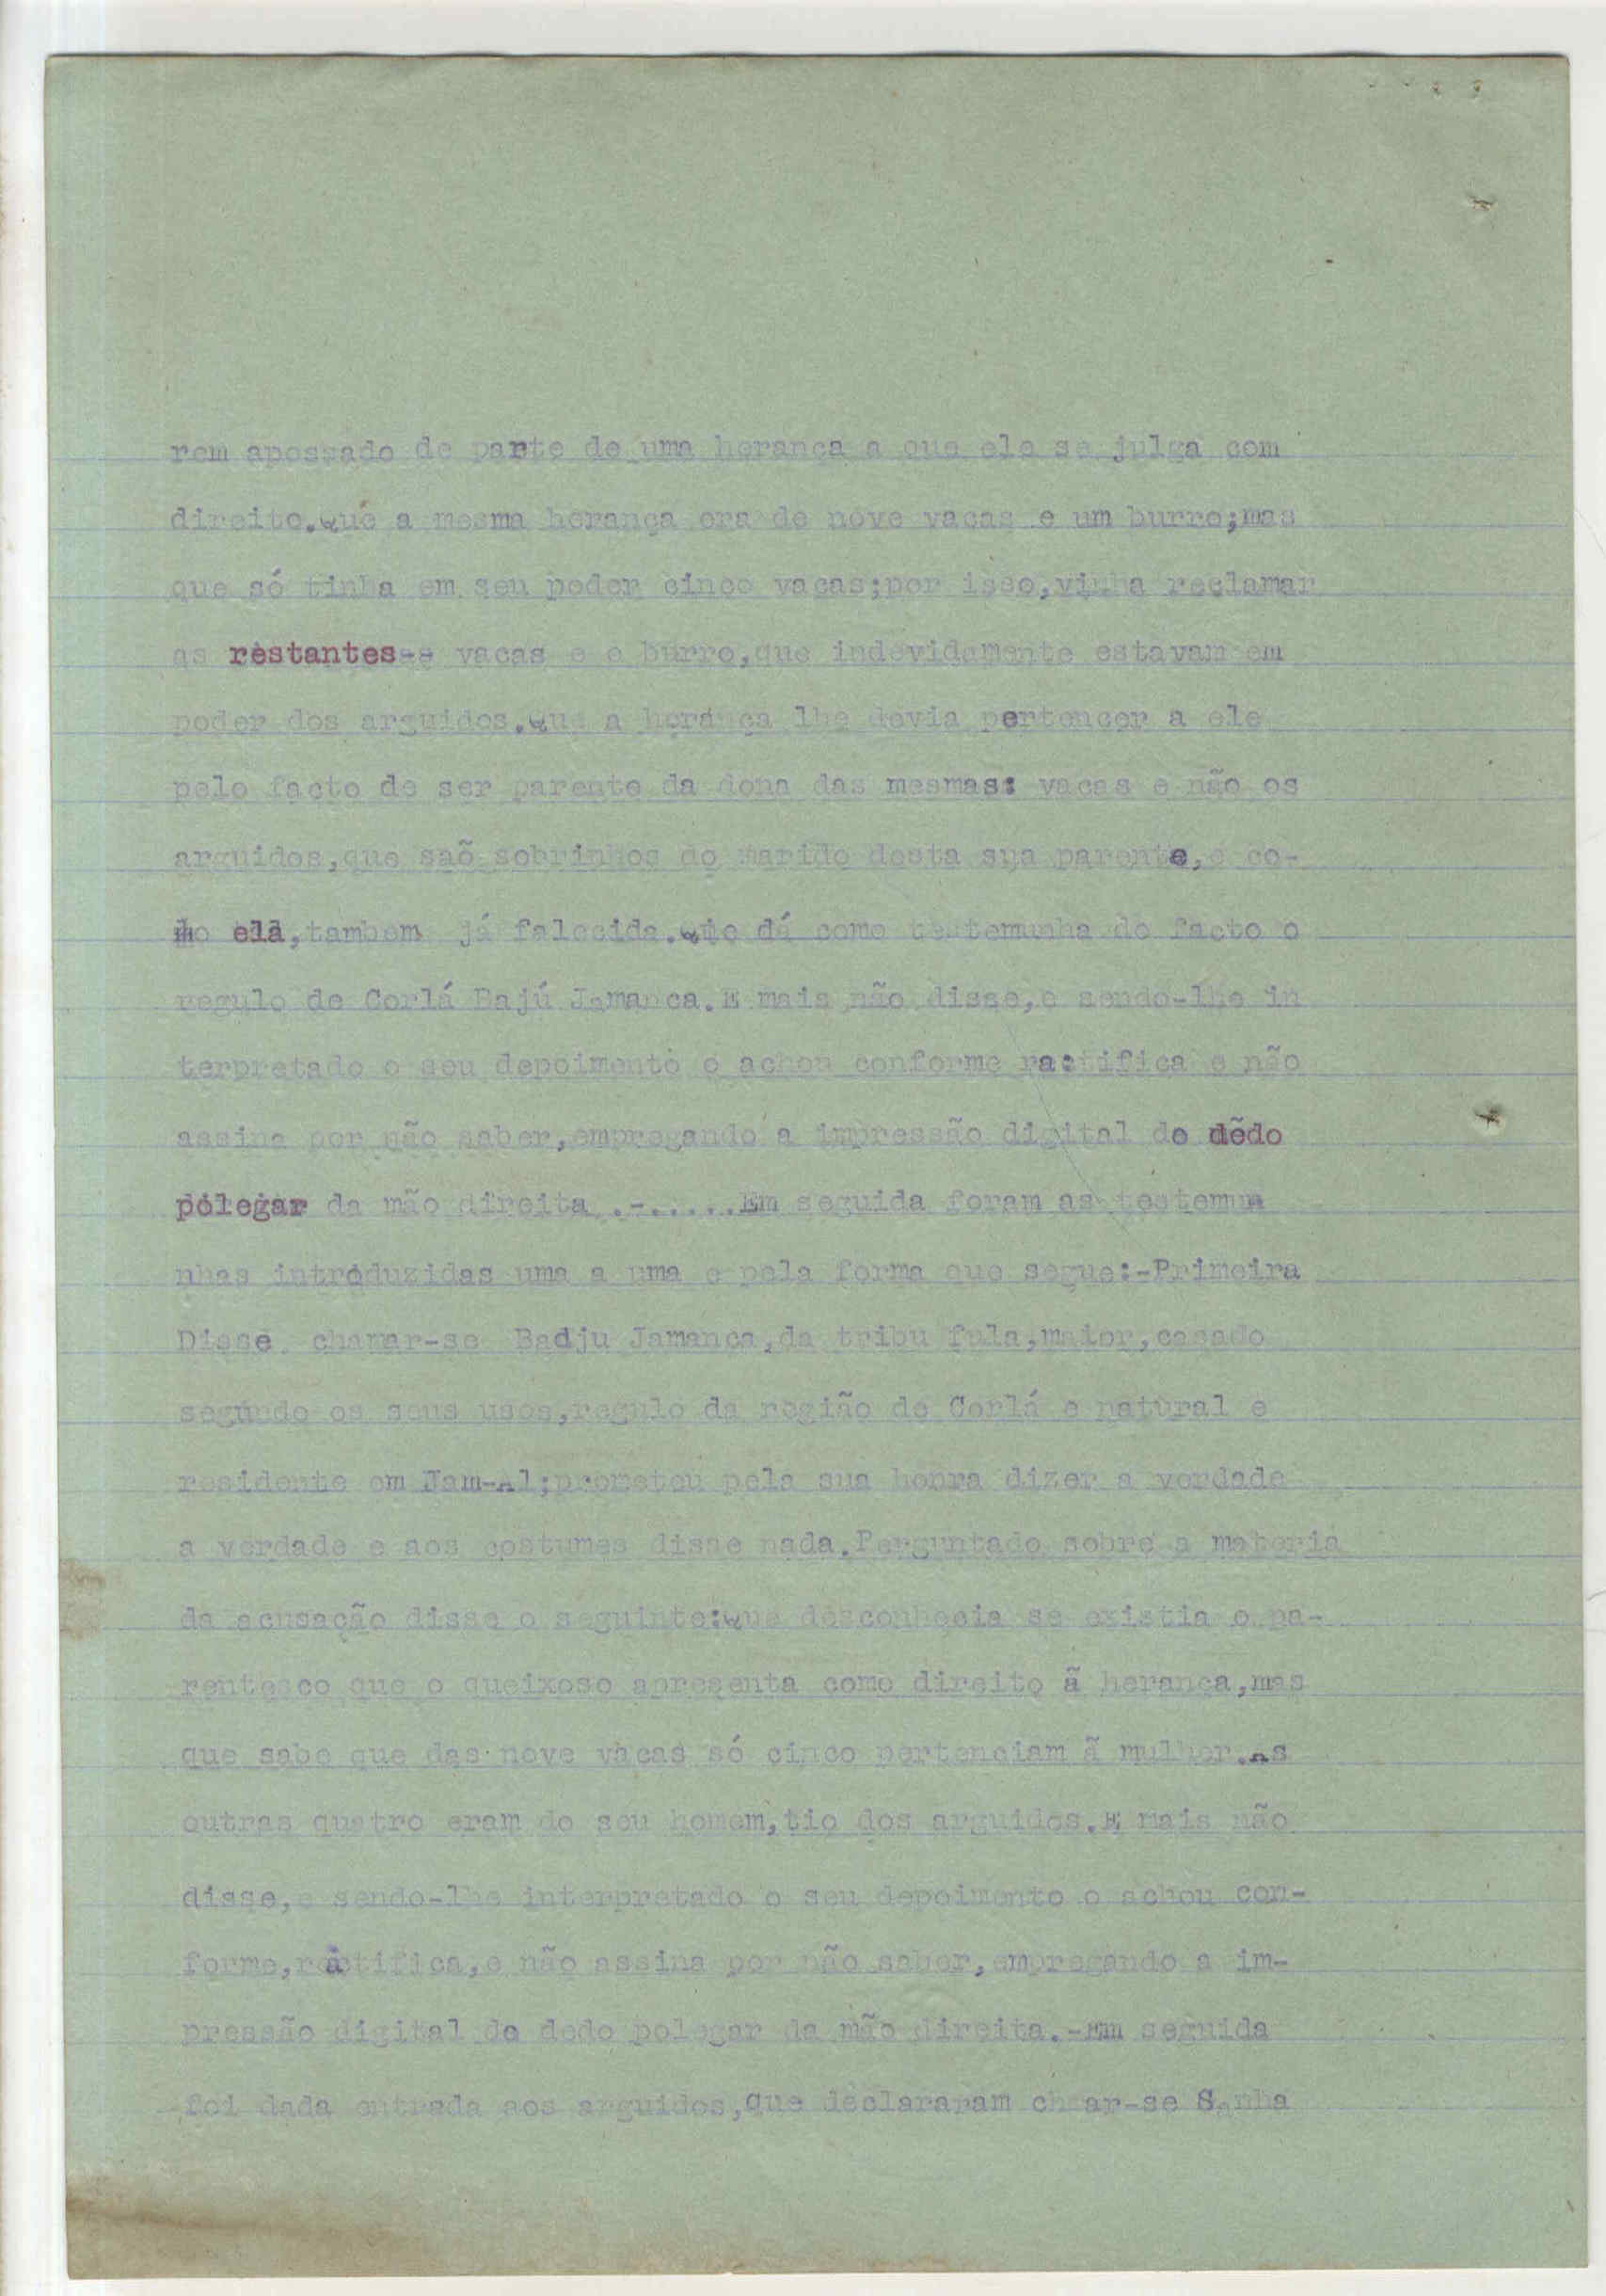 rem apossado de parte de uma herança a que ele se julga com
direito.Que a mesma herança era de nove vacas e um burro;mas
que só tinha em seu poder cinco vacas;por isso,vinha reclamar
as restantes vacas e o burro,que indevidamente estavam em
poder dos arguidos.Que a herança lhe devia pertencer a ele
pelo facto de ser parente da dona das mesmas: vacas e não os
arguidos,que saõ sobrinhos do marido desta sua parente,e co-
mo ela,tambem já falecida.Que dá como testemunha do facto o
regulo de Corlá Bajú Jamanca.E mais não disse,e sendo-lhe in
terpretado o seu depoimento o achou conforme ractifica e não
assina por não saber,empregando a impressão digital do dêdo
polegar da mão direita .-.....Em seguida foram as testemun
nhas introduzidas uma a uma e pela forma que segue:-Primeira
Disse chamar-se Badju Jamanca,da tribu fula,maior,casado
segundo os seus usos,regulo da região de Corlá e natural e
residente em Jam-Al;prometeu pela sua honra dizer a verdade
a verdade e aos costumes disse nada.Perguntado sobre a materia
da acusação disse o seguinte:Que desconhecia se existia o pa-
rentesco que o queixoso apresenta como direito ã herança,mas
que sabe que das nove vacas só cinco pertenciam ã mulher.As
outras quatro eram do seu homem,tio dos arguidos.E mais não
disse,e sendo-lhe interpretado o seu depoimento o achou con-
forme,ratifica,e não assina por não saber,empregando a im-
pressão digital do dedo polegar da mão direita.-Em seguida
foi dada entrada aos arguidos,que declararam chmar-se Sanha